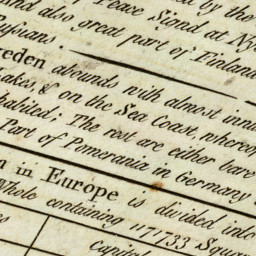 by the
Peace Signd at Ny
and also great part of Finland
Russians.
eden abounds with almost inn
Lakes, & on the Sea Coast, wherein
habited; The rest are either bare
Part of Pomerania in Germany
in Europe is divided into
Whole containing 1171733 Squar
Capital